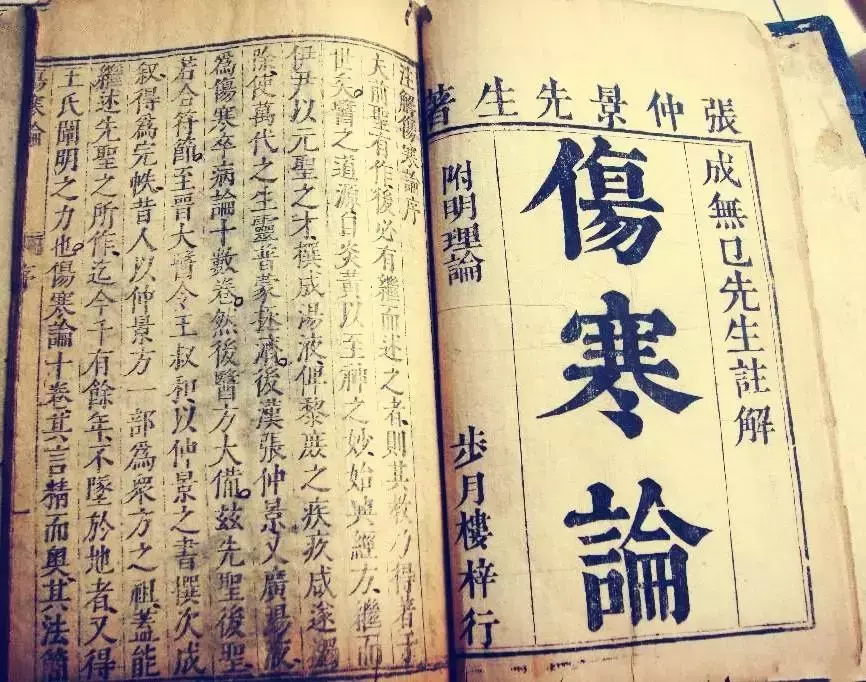 張仲景先生著
成無已先生註解
傷寒論
附明理論
步月樓梓行
注解傷寒論序
夫前聖有作後必有繼而述之者則其教乃得著于
世矣醫之道源自炎黃以至神之妙始興經方繼而
伊尹以元聖之才撰成湯液俾黎庶之疾疚咸遂蠲
除使萬代之生靈普蒙拯濟後漢張仲景又廣湯液
為傷寒卒病論十數卷然後醫方大備茲先聖後聖
若合符節至晉大醫令王叔和以仲景之書撰次成
敘得為完帙昔人以仲景方一部為眾方之祖蓋能
繼述先聖之所作迄今千有餘年不墜於地者又得
王氏闡明之力也傷寒論十卷其言精而奧其法簡
傷寒論 序